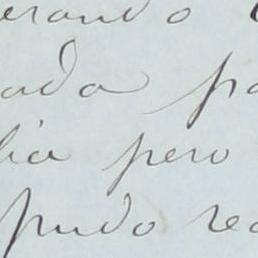 erando
ada pa
lia pero
pudo rea